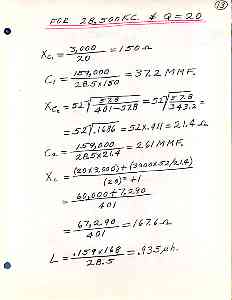 13
FOR 28,500 KC & Q = 20
XC1 = 3,000 / 20 = 150 Ω
C1 = 159,000 / 28.5 x 150 = 37.2 MMF.
XC2 = 52 √ 52.8 / 401 - 57.8 = 52 √ 57.8 / 343.2 =
= 52 √ .1686 = 52 x .411 = 21.4 Ω
C2 = 159,000 / 28.5 x 21.4 = 261 MMF.
XL = (20 x 3,000) + (3000 x 52 / 21.4) / (20)² + 1
= 60,000 + 7,290 / 401
= 67,290 / 401 = 167.6 Ω
L = .159 x 168 / 28.5 = .935 µh.